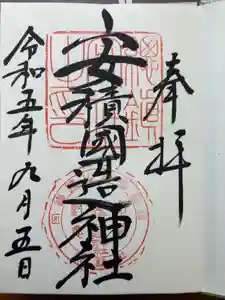 奉拝
安積國造神社
令和五年九月五日